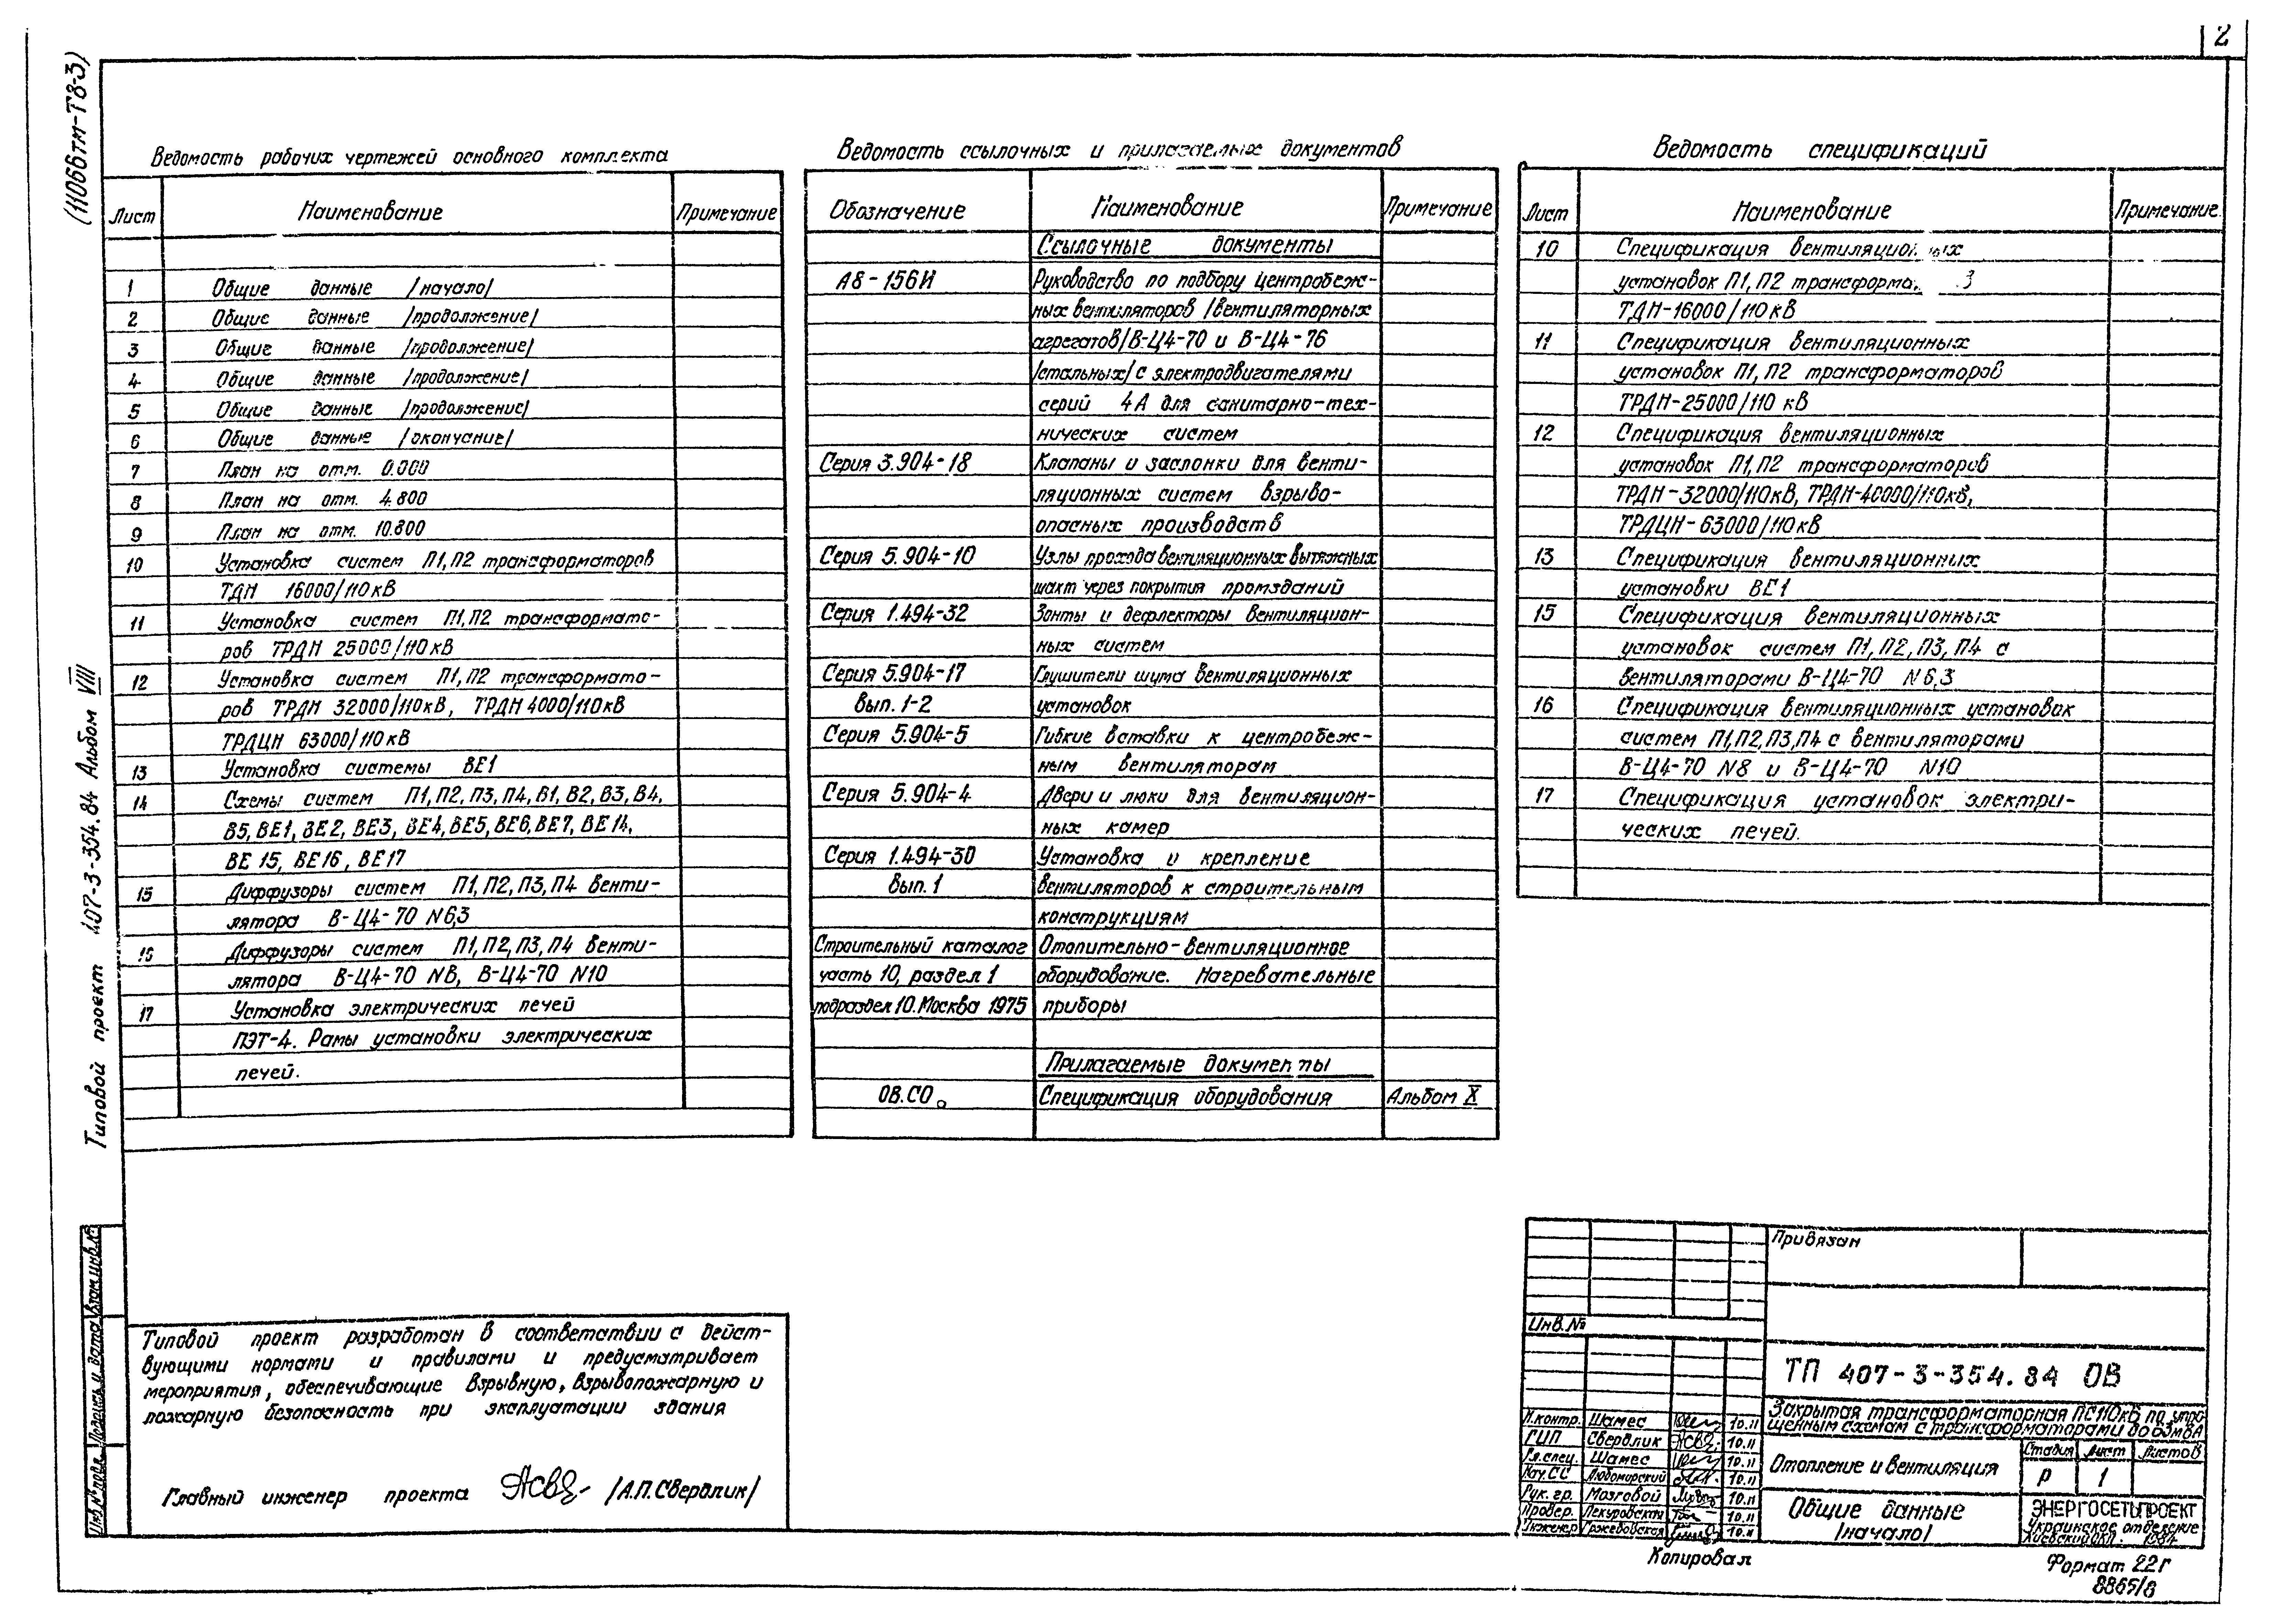 2
(11066тм-Т8-3)
Типовой проект 407-3-354.84 Альбом VIII
Ведомость рабочих чертежей основного комплекта
Лист Наименование Примечание
1 Общие данные /начало/
2 Общие данные /продолжение/
3 Общие данные /продолжение/
4 Общие данные /продолжение/
5 Общие данные /продолжение/
6 Общие данные /окончание/
7 План на отм. 0.000
8 План на отм. 4.800
9 План на отм. 10.800
10 Установка систем П1, П2 трансформаторов
ТДН 16000/110кВ
11 Установка систем П1, П2 трансформато-
ров ТРДН 25000/110кВ
12 Установка систем П1, П2 трансформато-
ров ТРДН 32000/110кВ, ТРДН 4000/110кВ
ТРДЦН 63000/110кВ
13 Установка системы ВЕ1
14 Схемы систем П1, П2, П3, П4, В1, В2, В3, В4,
В5, ВЕ1, ВЕ2, ВЕ3, ВЕ4, ВЕ5, ВЕ6, ВЕ7, ВЕ14,
ВЕ15, ВЕ16, ВЕ17
15 Диффузоры систем П1, П2, П3, П4 венти-
лятора В-Ц4-70 N6,3
16 Диффузоры систем П1, П2, П3, П4 венти-
лятора В-Ц4-70 N8, В-Ц4-70 N10
17 Установка электрических печей
ПЭТ-4. Рамы установки электрических
печей.
Ведомость ссылочных и прилагаемых документов
Обозначение Наименование Примечание
Ссылочные документы
А8-156И Руководство по подбору центробеж-
ных вентиляторов /вентиляторных
агрегатов/ В-Ц4-70 и В-Ц4-76
/стальных/ с электродвигателями
серий 4А для санитарно-тех-
нических систем
Серия 3.904-18 Клапаны и заслонки для венти-
ляционных систем взрыво-
опасных производств
Серия 5.904-10 Узлы прохода вентиляционных вытяжных
шахт через покрытия промзданий
Серия 1.494-32 Зонты и дефлекторы вентиляцион-
ных систем
Серия 5.904-17 Глушители шума вентиляционных
Вып. 1-2 установок
Серия 5.904-5 Гибкие вставки к центробеж-
ным вентиляторам
Серия 5.904-4 Двери и люки для вентиляцион-
ных камер
Серия 1.494-30 Установка и крепление
Вып. 1 вентиляторов к строительным
конструкциям
Строительный каталог Отопительно-вентиляционное
часть 10, раздел 1 оборудование. Нагревательные
подраздел 10. Москва 1975 приборы
Прилагаемые документы
ОВ.СО Спецификация оборудования Альбом X
Ведомость спецификаций
Лист Наименование Примечание
10 Спецификация вентиляционных
установок П1, П2
ТДН-16000/110кВ
11 Спецификация вентиляционных
установок П1, П2 трансформаторов
ТРДН-25000/110 кВ
12 Спецификация вентиляционных
установок П1, П2 трансформаторов
ТРДН-32000/110кВ, ТРДН-40000/110кВ,
ТРДЦН-63000/110кВ
13 Спецификация вентиляционных
установки ВЕ1
15 Спецификация вентиляционных
установок систем П1, П2, П3, П4 с
вентиляторами В-Ц4-70 N6,3
16 Спецификация вентиляционных установок
систем П1, П2, П3, П4 с вентиляторами
В-Ц4-70 N8 и В-Ц4-70 N10
17 Спецификация установок электри-
ческих печей.
Инв.№ подл. Подпись и дата Взам.инв.№
Типовой проект разработан в соответствии с дейст-
вующими нормами и правилами и предусматривает
мероприятия, обеспечивающие взрывную, взрывопожарную и
пожарную безопасность при эксплуатации здания
Главный инженер проекта /А.П.Свердлик/
Привязан
Инв.№
ТП 407-3-354.84 ОВ
Закрытая трансформаторная ПС110кВ по упро-
щенным схемам с трансформаторами до 63мВА
Н.контр. Шамес 10.11
ГИП Свердлик 10.11
Гл.спец. Шамес 10.11
Нач.СС Любомирский 10.11
Рук. гр. Мозговой 10.11
Провер. Пекуровская 10.11
Инженер Гржебовская 10.11
Отопление и вентиляция
Стадия Лист Листов
Р 1
Общие данные
/начало/
ЭНЕРГОСЕТЬПРОЕКТ
Украинское отделение
Киевский ОКП. 1984
Копировал
Формат 22г
8865/8